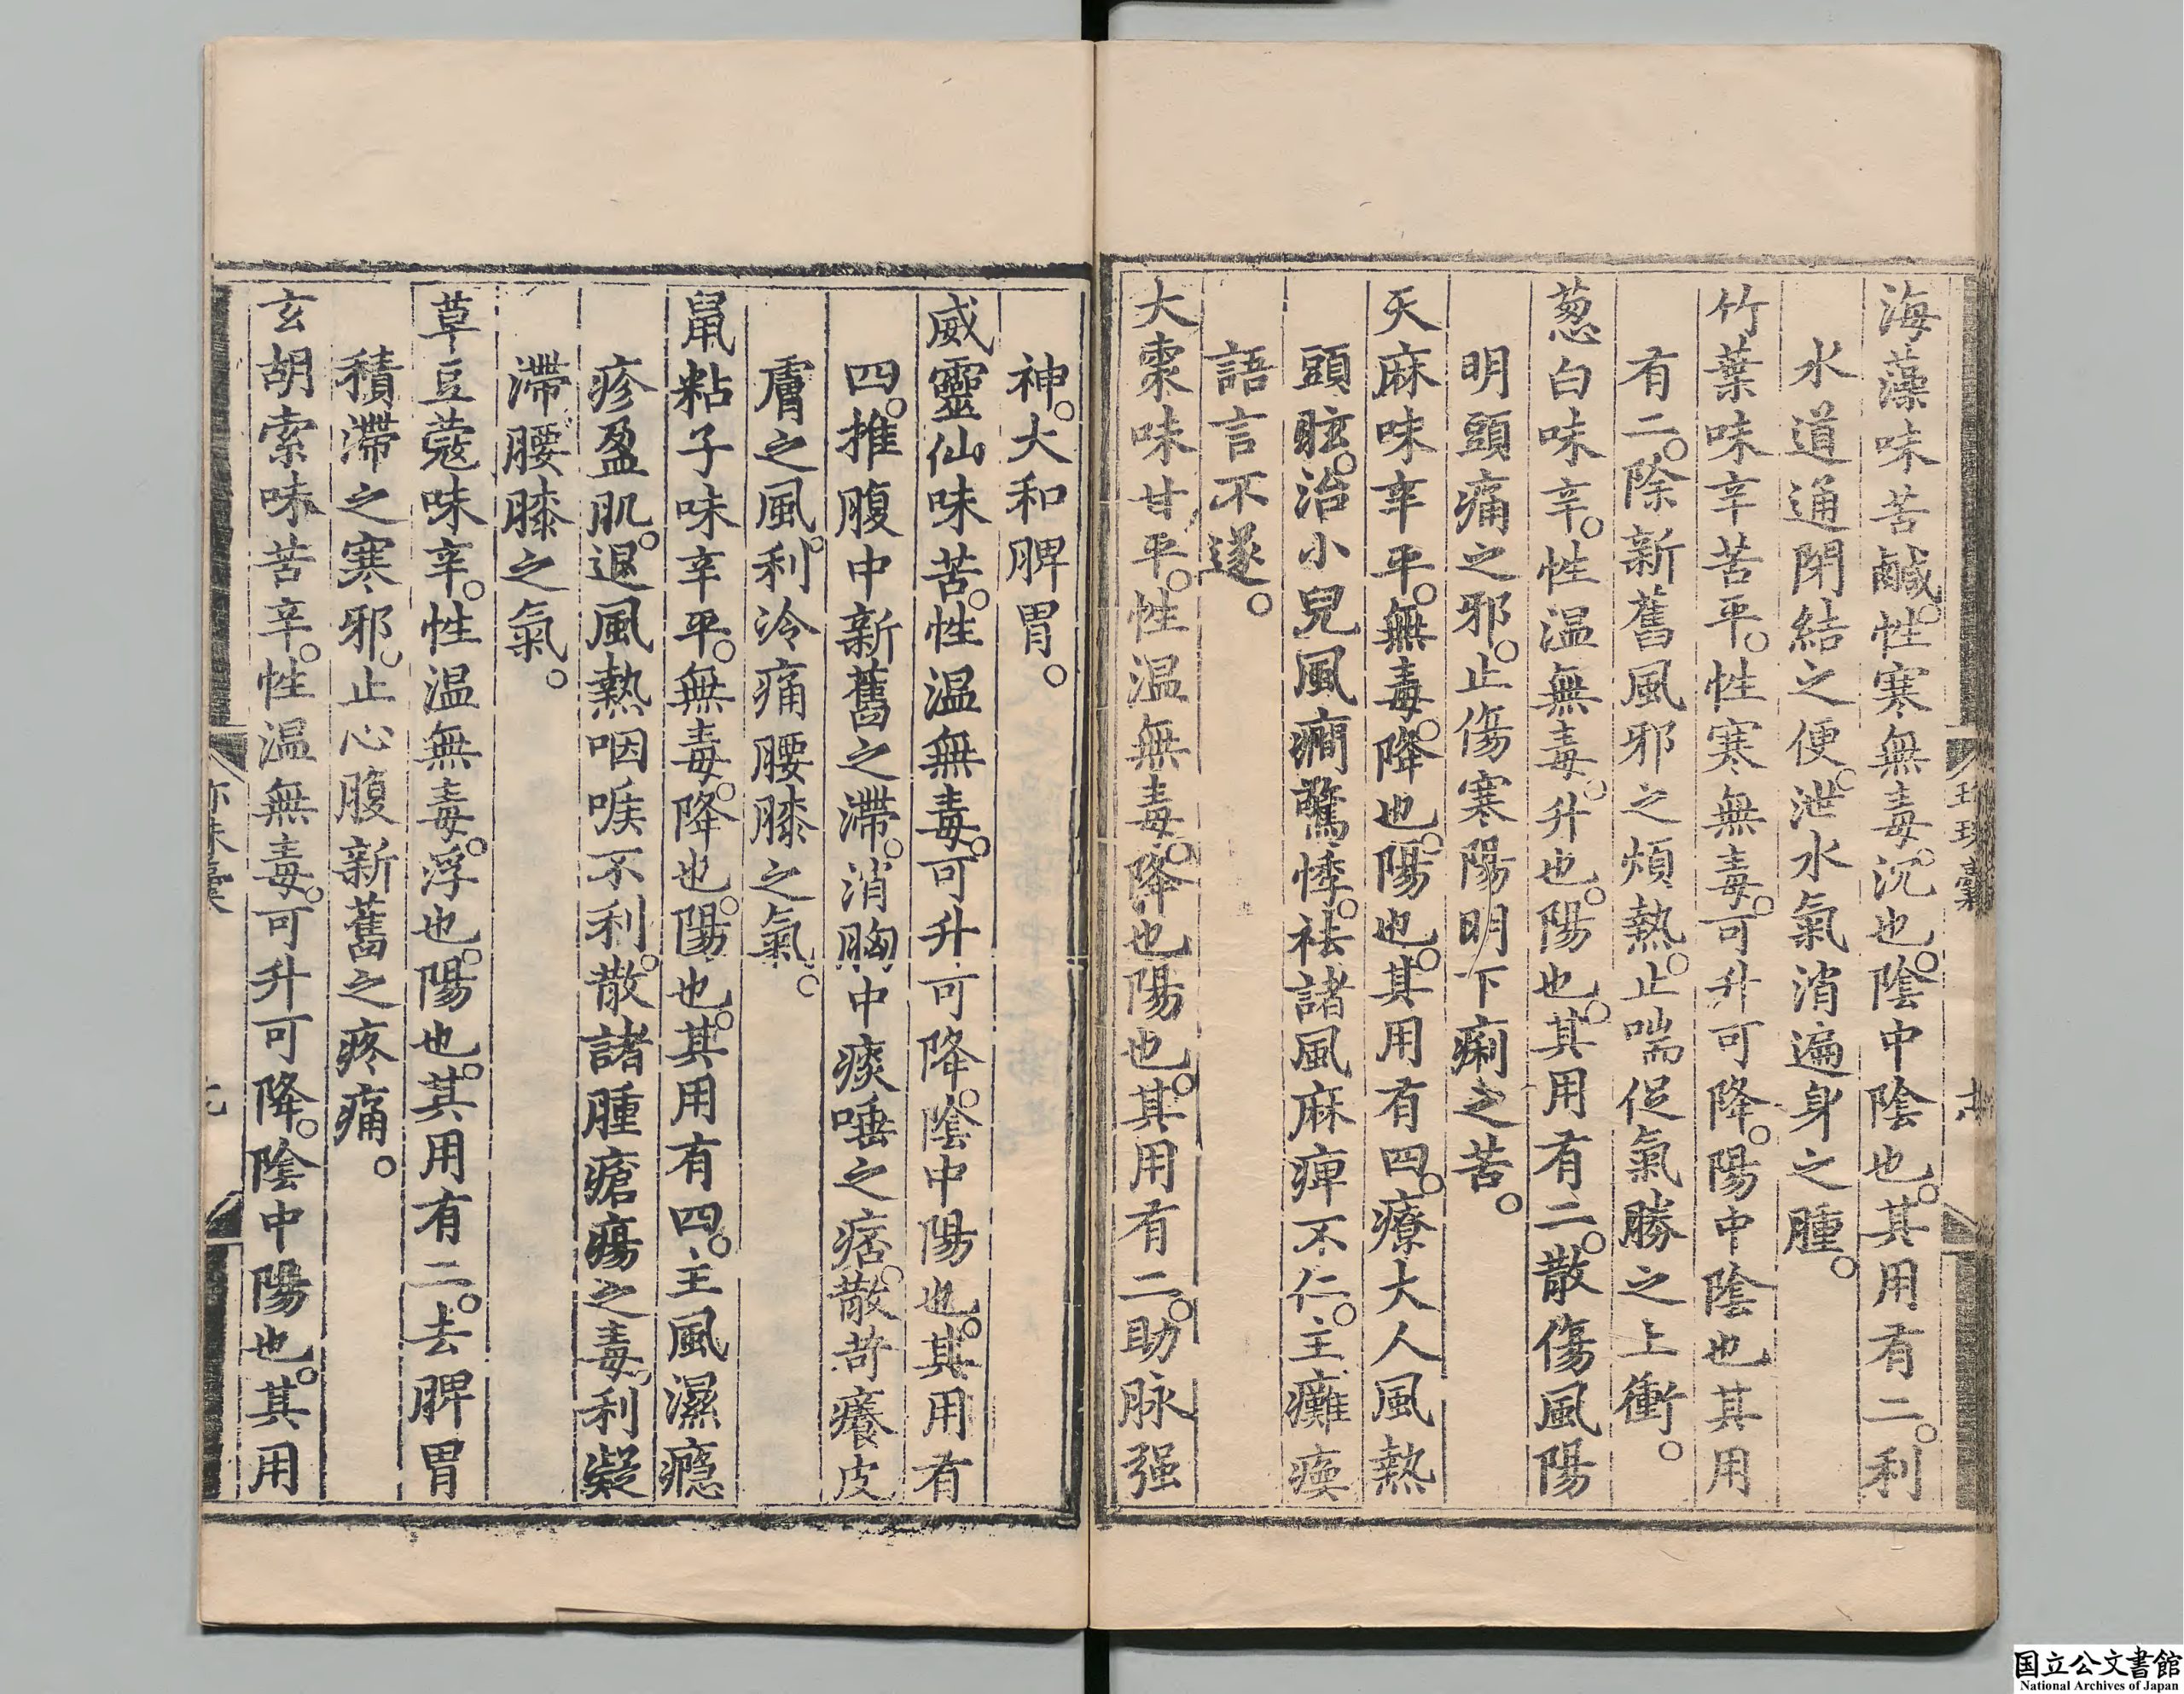 海藻味苦鹹。性寒無毒。沉也。陰中陰也。其用有二。利
水道通閉結之便。泄水氣消遍身之腫。
竹葉味辛苦平。性寒無毒。可升可降。陽中陰也其用
有二。除新舊風邪之煩熱。止喘促氣勝之上衝。
葱白味辛。性温無毒。升也。陽也。其用有二。散傷風陽
明頭痛之邪。止傷寒陽明下痢之苦。
天麻味辛平。無毒。降也。陽也。其用有四。療大人風熱
頭眩。治小兒風癇驚悸。祛諸風麻痺不仁。主癱瘓
語言不遂。
大棗味甘平。性温無毒。降也陽也。其用有二。助脉强
神。大和脾胃。
威靈仙味苦。性温無毒。可升可降。陰中陽也。其用有
四。推腹中新舊之滯。消胸中痰唾之痞。散苛癢皮
膚之風。利冷痛腰膝之氣。
鼠粘子味辛平。無毒。降也。陽也。其用有四。主風濕癮
疹盈肌。退風熱咽喉不利。散諸腫瘡瘍之毒。利凝
滯腰膝之氣。
草豆蔻味辛。性温無毒。浮也。陽也。其用有二。去脾胃
積滯之寒邪。止心腹新舊之疼痛。
玄胡索味苦辛。性温無毒。可升可降。陰中陽也。其用
珍珠囊
国立公文書館
National Archives of Japan